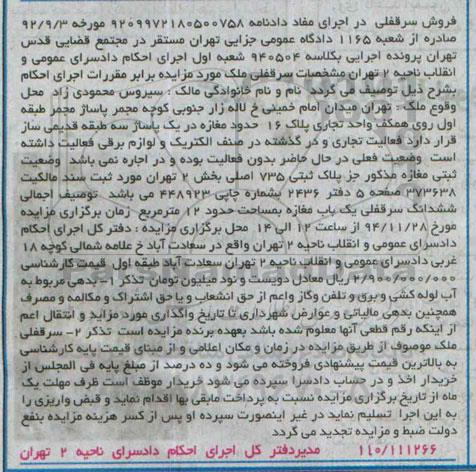 فروش سرقفلی در اجرای مفاد دادنامه ۹۲۰۹۹۷۲۱۸۰۵۰۰۷۵۸ مورخه ۹۲/۹/۳
صادره از شعبه ۱۱۶۵ دادگاه عمومی جزایی تهران مستقر در مجتمع قضایی قدس
تهران پرونده اجرایی بکلاسه ۹۴۰۵۰۴ شعبه اول اجرای احکام دادسرای عمومی و
انقلاب ناحیه ۲ تهران مشخصات سرقفلی ملک مورد مزایده برابر مقررات اجرای احکام
بشرح ذیل توصیف می گردد نام و نام خانوادگی مالک : سیروس محمودی زاد محل
وقوع ملک : تهران میدان امام خمینی خ لاله زار جنوبی کوچه مجمر پاساژ مجمر طبقه
اول روی همکف واحد تجاری پلاک ۱۶ حدود مغازه در یک پاساژ سه طبقه قدیمی ساز
قرار دارد فعالیت تجاری و در گذشته در صنف الکتریک و لوازم برقی فعالیت داشته
است وضعیت فعلی در حال حاضر بدون فعالیت بوده و در اجاره نمی باشد وضعیت
ثبتی مغازه مذکور جز پلاک ثبتی ۷۳۵ اصلی بخش ۲ تهران مورد ثبت سند مالکیت
۳۷۳۶۳۸ صفحه ۵ دفتر ۲۴۳۶ بشماره چاپی ۴۴۸۹۲۳ می باشد توصیف اجمالی
ششدانگ سرقفلی یک باب مغازه بمساحت حدود ۱۲ مترمربع زمان برگزاری مزایده
مورخ ۹۴/۱۱/۲۸ از ساعت ۱۲ الی ۱۴ محل برگزاری مزایده : دفتر کل اجرای احکام
دادسرای عمومی و انقلاب ناحیه ۲ تهران واقع در سعادت آباد خ علامه شمالی کوچه ۱۸
غربی دادسرای عمومی و انقلاب ناحیه ۲ تهران سعادت آباد طبقه اول قیمت کارشناسی
۲/۹۰۰/۰۰۰/۰۰۰ ریال معادل دویست و نود میلیون تومان تذکر ۱- بدهی مربوط به
آب لوله کشی و برق و تلفن وگاز واعم از حق انشعاب و یا حق اشتراک و مکالمه و مصرف
همچنین بدهی مالیاتی و عوارض شهرداری تا تاریخ واگذاری مورد مزاید و انتقال اعم
از اینکه رقم قطعی آنها معلوم شده باشد بعهده برنده مزایده است تذکر ۲- سرقفلی
ملک موصوف از طریق مزایده در زمان و مکان اعلامی و از مبنای قیمت پایه کارشناسی
به بالاترین قیمت پیشنهادی فروخته می شود و ده درصد از مبلغ پایه فی المجلس از
خریدار اخذ و در حساب دادسرا سپرده می شود خریدار موظف است ظرف مهلت یک
ماه از تاریخ برگزاری مزایده نسبت به پرداخت مابقی بها اقدام نماید و قبض واریزی را
به این اجرا تسلیم نماید در غیر اینصورت سپرده او پس از کسر هزینه مزایده بنفع
دولت ضبط و مزایده تجدید می گردد
۱۱۰/۱۱۱۲۶۶ مدیردفتر کل اجرای احکام دادسرای ناحیه ۲ تهران